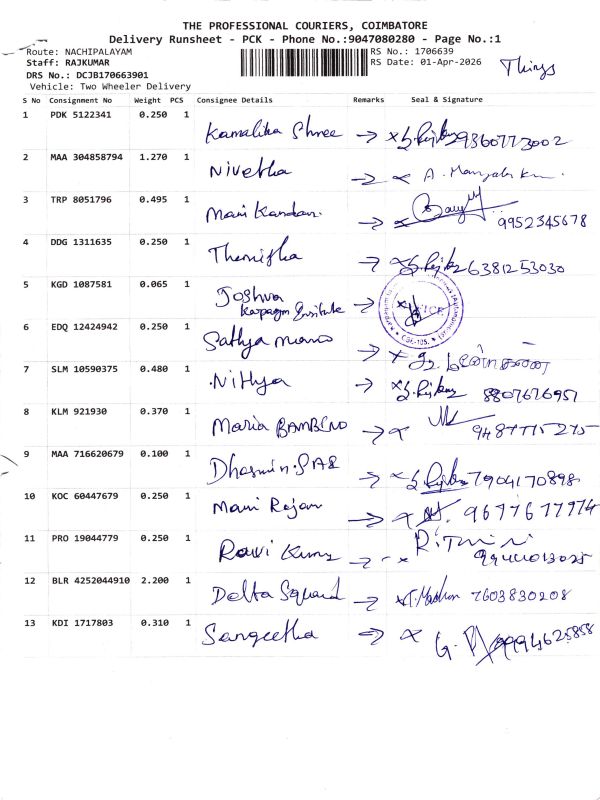 THE PROFESSIONAL COURIERS, COIMBATORE
Delivery Runsheet - PCK - Phone No.:9047080280 - Page No.:1
Route: NACHIPALAYAM RS No.: 1706639
Staff: RAJKUMAR RS Date: 01-Apr-2026 Things
DRS No.: DCJB170663901
Vehicle: Two Wheeler Delivery
S No Consignment No Weight PCS Consignee Details Remarks Seal & Signature
1 PDK 5122341 0.250 1 Kamalika Shree 9360773002
2 MAA 304858794 1.270 1 Nivetha
3 TRP 8051796 0.495 1 Mani Kandan 9952345678
4 DDG 1311635 0.250 1 6381253030
5 KGD 1087581 0.065 1 Joshva
6 EDQ 12424942 0.250 1 Sathya
7 SLM 10590375 0.480 1 Nithya 8807676951
8 KLM 921930 0.370 1 Maria BAMBINO
9 MAA 716620679 0.100 1 7904170898
10 KOC 60447679 0.250 1 Mani Rajan 9677677774
11 PRO 19044779 0.250 1
12 BLR 4252044910 2.200 1 Delta Squard 7603830208
13 KDI 1717803 0.310 1 Sangeetha 9994625858